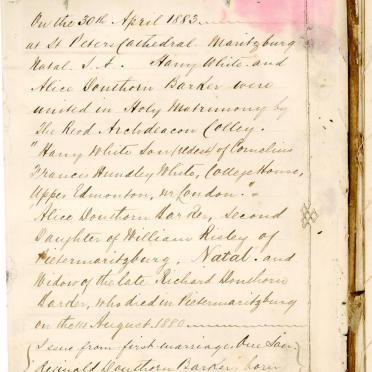 On the 30th April 1883
at St Peters Cathedral. Maritzburg
Natal. S.A. Harry White and
Alice Douthorn Barker were
united in Holy Matrimony by
The Revd. Archdeacon Colley.
"Harry White Son (eldest) of Cornelius
Francis Hundley White, College House,
Upper Edmonton, nr London."
Alice Douthorn Barker, Second
Daughter of William Risley of
Pietermaritzburg, Natal. and
Widow of the late Richard Douthorn
Barker, who died in Pietermaritzburg
on the August 1880
Issue from first marriage. One Son.
Reginald Douthorn Barker. born